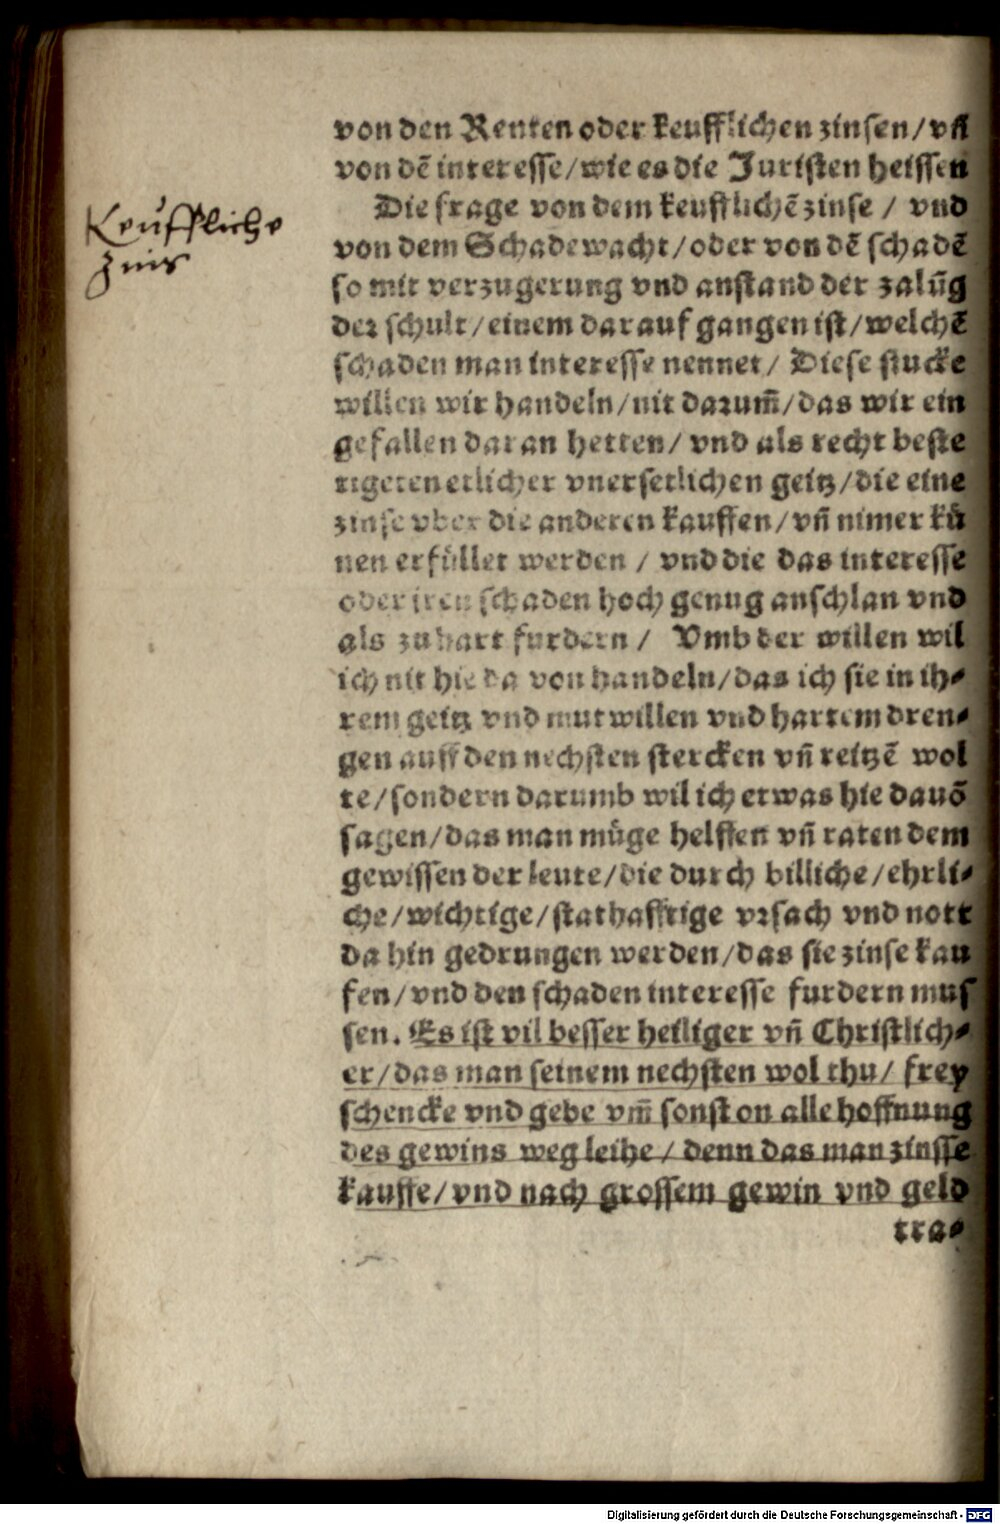 von den Renten oder keufflichen zinsen/ vñ
von dẽ interesse/ wie es die Juristen heissen
Die frage von dem keufflichẽ zinse / vnd
von dem Schadewacht/ oder von dẽ schadẽ
so mit verzugerung vnd anstand der zalũg
der schult/ einem darauf gangen ist/ welchẽ
schaden man interesse nennet/ Diese stucke
willen wir handeln/ nit darum̃/ das wir ein
gefallen daran hetten/ vnd als recht beste
tigeten etlicher vnersetlichen geitz/ die eine
zinse vber die anderen kauffen/ vñ nimer kü
nen erfüllet werden / vnd die das interesse
oder iren schaden hoch genug anschlan vnd
als zu hart furdern / Vmb der willen wil
ich nit hie da von handeln/ das ich sie in ih⸗
rem geitz vnd mutwillen vnd hartem dren⸗
gen auff den nechsten stercken vñ reitzẽ wol
te/ sondern darumb wil ich etwas hie dauõ
sagen/ das man müge helffen vñ raten dem
gewissen der leute/ die durch billiche/ ehrli⸗
che/ wichtige/ stathafftige vrsach vnd nott
da hin gedrungen werden/ das sie zinse kau
fen/ vnd den schaden interesse furdern mus
sen. Es ist vil besser heiliger vñ Christlich⸗
er/ das man seinem nechsten wol thu/ frey
schencke vnd gebe vm̃ sonst on alle hoffnung
des gewins weg leihe / denn das man zinsse
kauffe/ vnd nach grossem gewin vnd geld
tra⸗
Keuffliche
Zins
Digitalisierung gefördert durch die Deutsche Forschungsgemeinschaft - DFG